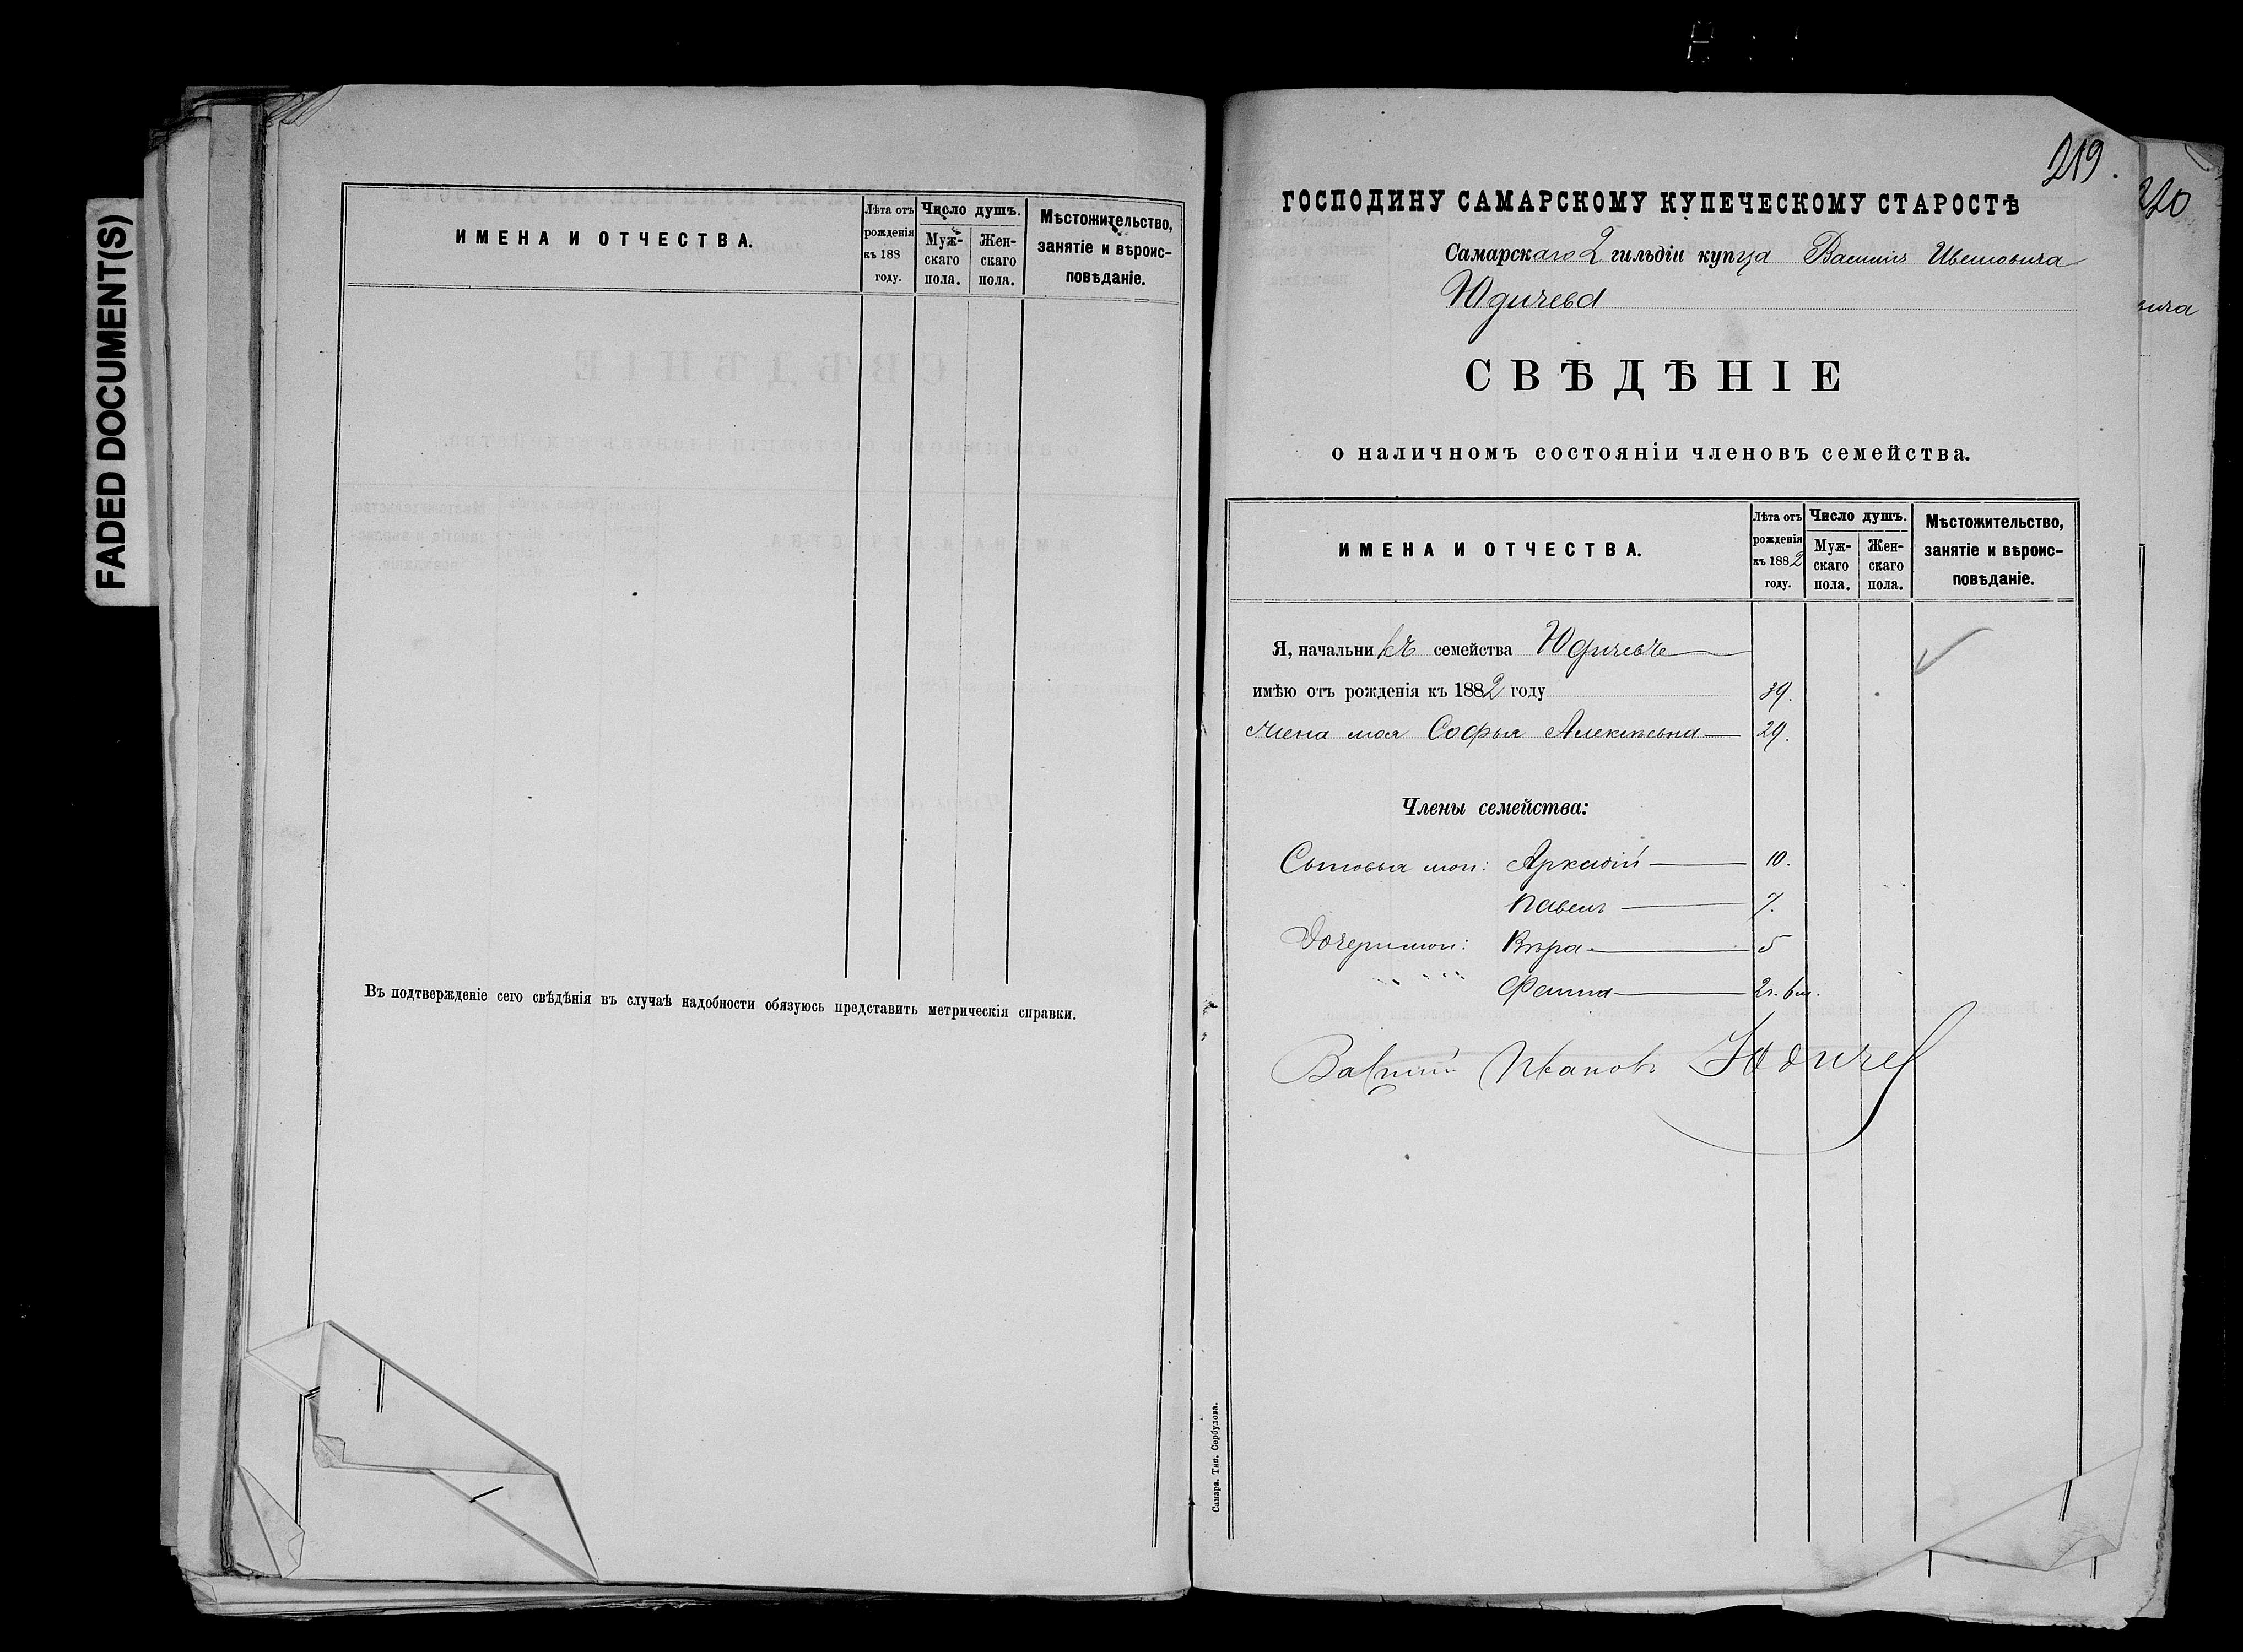 FADED DOCUMENT(S)
ИМЕНА И ОТЧЕСТВА.
Лѣта отъ рожденія къ 188 году.
Число душъ.
Мужскаго пола.
Женскаго пола.
Мѣстожительство, занятіе и вѣроисповѣданіе.
Въ подтвержденіе сего свѣдѣнія въ случаѣ надобности обязуюсь представить метрическія справки.
219.
220
вича
ГОСПОДИНУ САМАРСКОМУ КУПЕЧЕСКОМУ СТАРОСТѢ
Самарскаго 2 гильдіи купца Василія Ивановича
Юдичева
СВѢДѢНІЕ
о наличномъ состояніи членовъ семейства.
ИМЕНА И ОТЧЕСТВА.
Лѣта отъ рожденія къ 1882 году.
Число душъ.
Мужскаго пола.
Женскаго пола.
Мѣстожительство, занятіе и вѣроисповѣданіе.
Я, начальникъ семейства Юдичевъ
имѣю отъ рожденія къ 1882 году 39.
Жена моя Софья Алексѣевна 29.
Члены семейства:
Сыновья мои: Аркадій 10.
Павелъ 7.
Дочери мои: Вѣра 5
Фаина 2 г. 6 м.
Василий Иванов Юдичев
Самара. Тип. Сербулова.